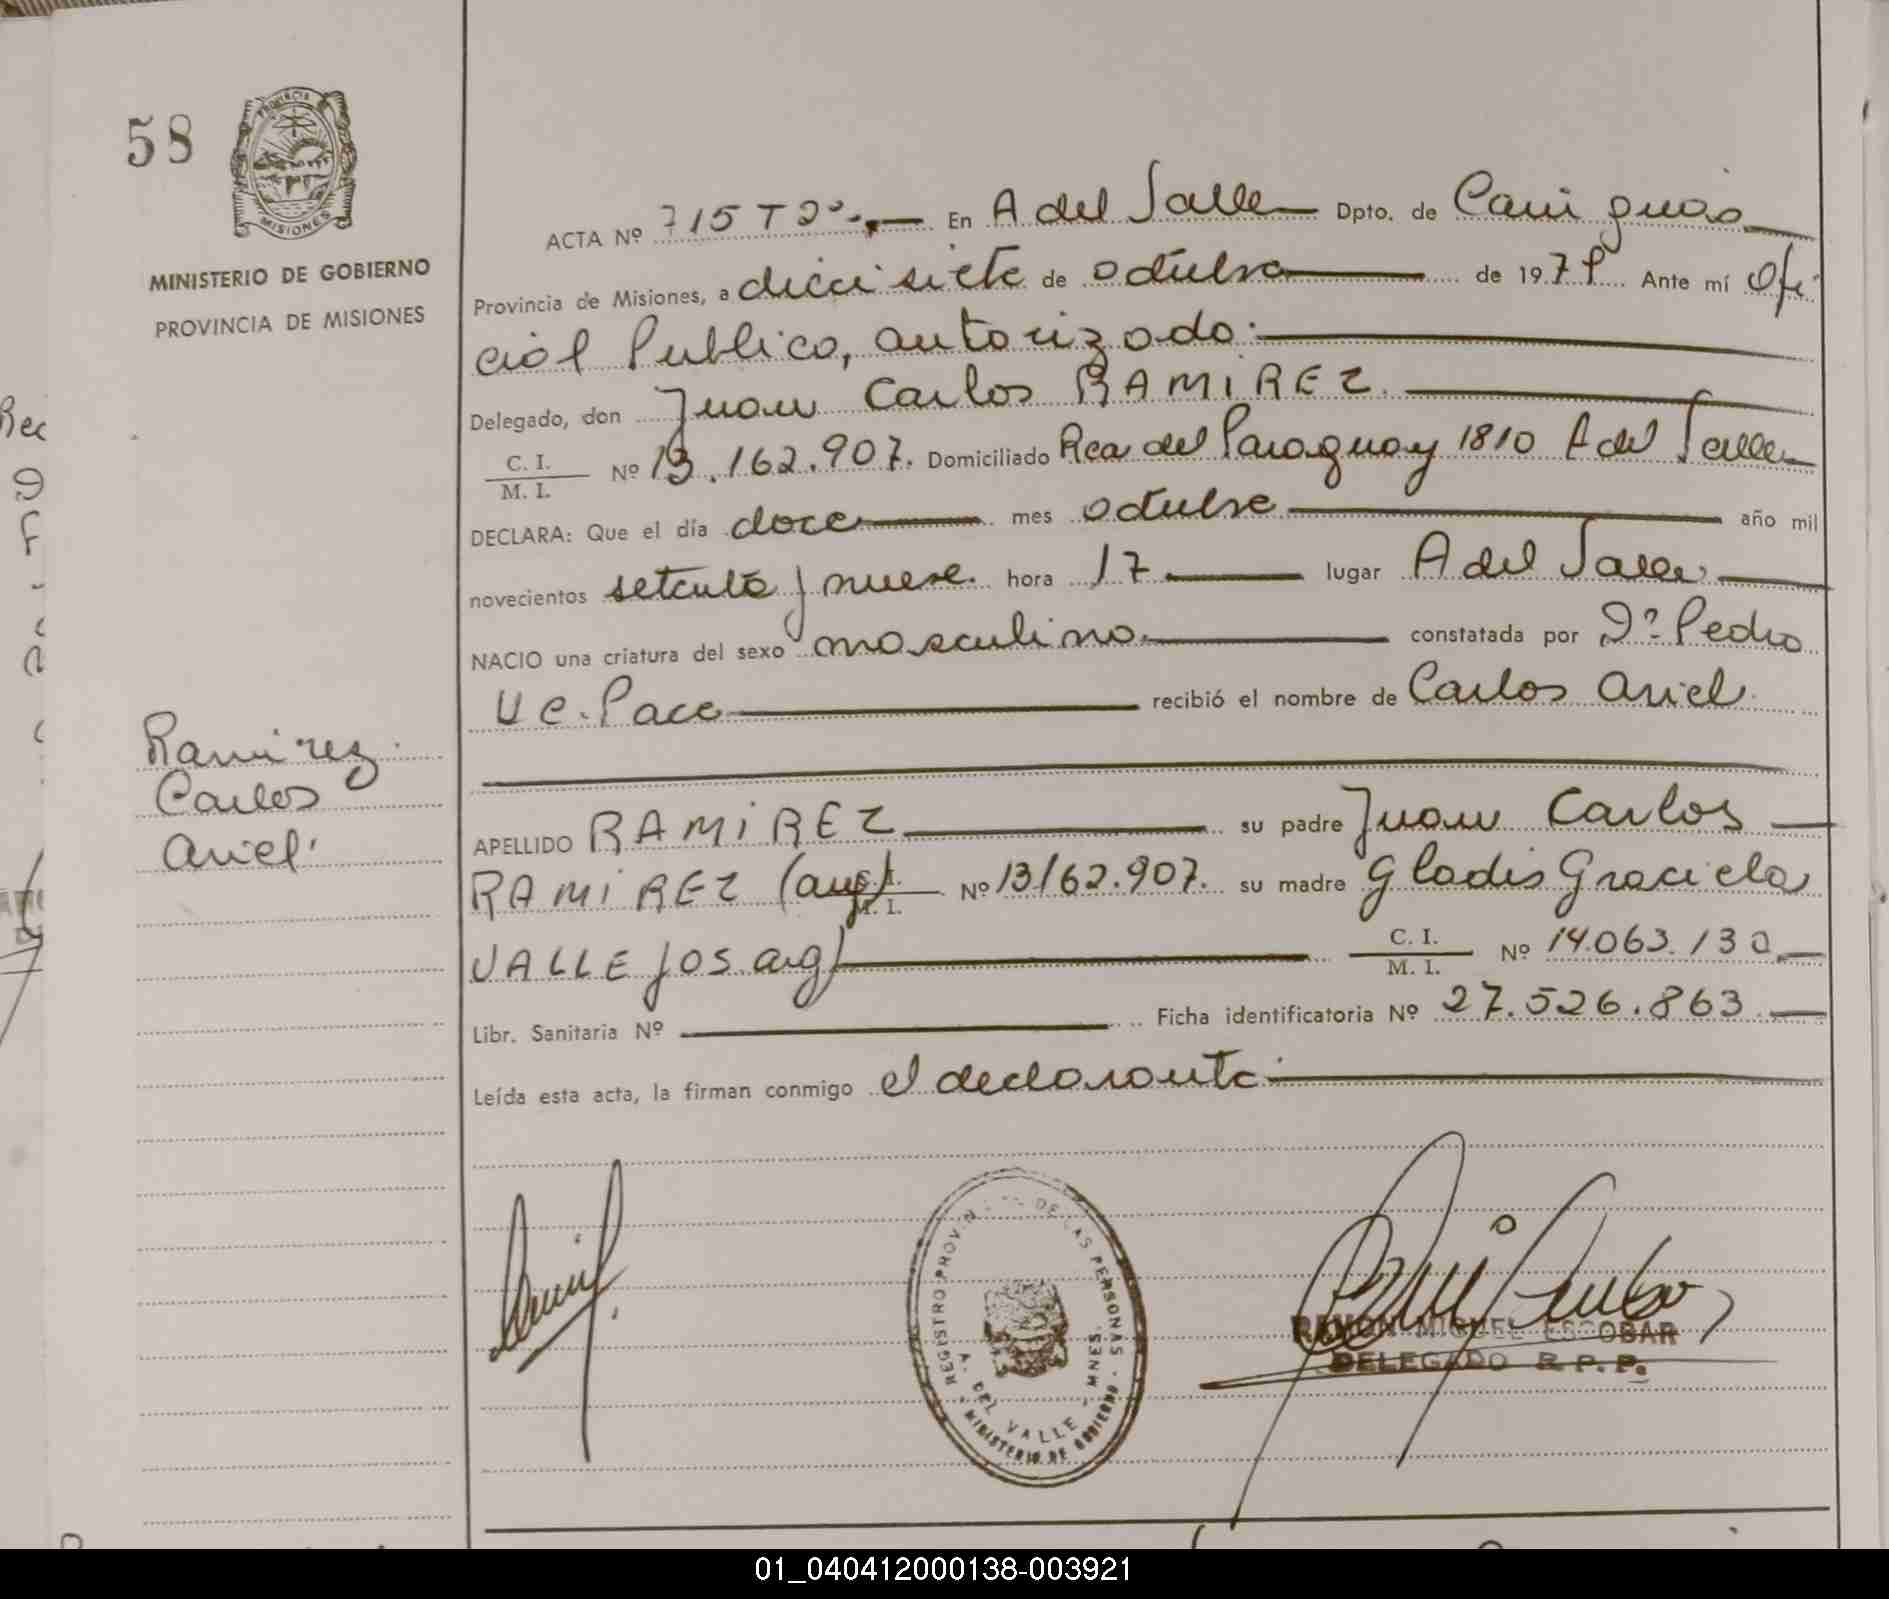 58
PROVINCIA
MISIONES
MINISTERIO DE GOBIERNO
PROVINCIA DE MISIONES
Ramirez
Carlos
Ariel.
ACTA Nº 715 Tº 2º.- En A del Valle Dpto. de Cainguás
Provincia de Misiones, a diecisiete de octubre de 1979 Ante mí Ofi
cial Publico, autorizado:
Delegado, don Juan Carlos RAMIREZ.
C. I.
M. I. Nº 13.162.907. Domiciliado Rca del Paraguay 1810 A del Valle
DECLARA: Que el día doce mes octubre año mil
novecientos setenta y nueve hora 17 lugar A del Valle
NACIO una criatura del sexo masculino constatada por Dº Pedro
Pace recibió el nombre de Carlos Ariel
APELLIDO RAMIREZ su padre Juan Carlos
RAMIREZ (arg) M. I. Nº 13162.907. su madre Gladis Graciela
VALLEJOS arg) C. I.
M. I. Nº 14.063.130
Libr. Sanitaria Nº Ficha identificatoria Nº 27.526.863
Leída esta acta, la firman conmigo el declarante
REGISTRO PROVIN DE LAS PERSONAS
A. DEL VALLE - MNES.
MINISTERIO DE GOBIERNO
RAMON MIGUEL ESCOBAR
DELEGADO R P. P.
01_040412000138-003921